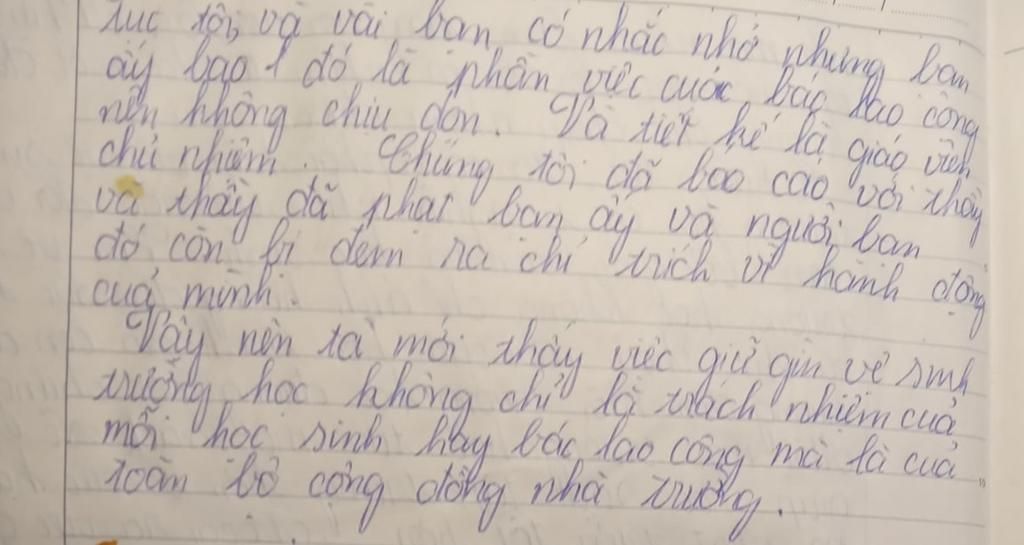 lúc tôi và vài bạn có nhắc nhở nhưng bạn
ấy bảo đó là phần việc của các bác lao công
nên không chịu dọn. Và tiết kế là giáo viên
chủ nhiệm. Chúng tôi đã báo cáo với thầy
và thầy đã phạt bạn ấy và người bạn
đó còn bị đem ra chỉ trích vì hành động
của mình.
Vậy nên ta mới thấy việc giữ gìn vệ sinh
trường học không chỉ là trách nhiệm của
mỗi học sinh hay bác lao công mà là của
toàn bộ cộng đồng nhà trường.